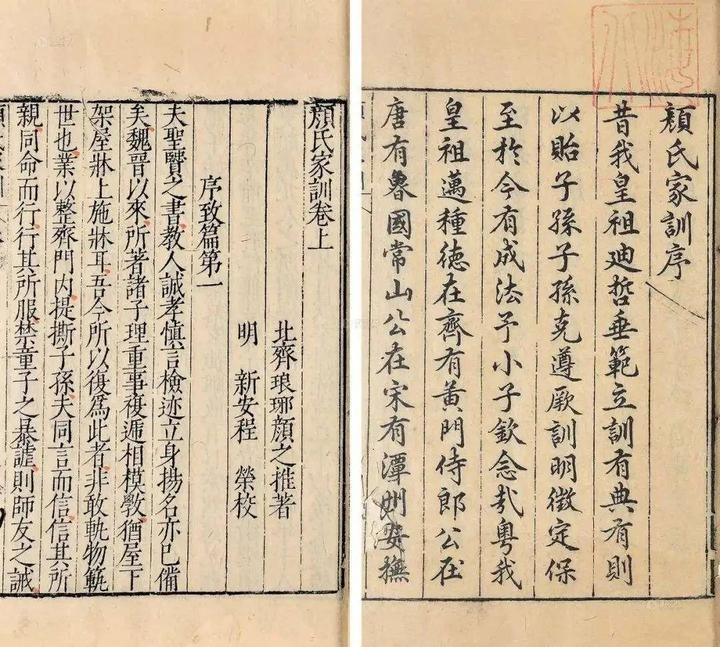 顔氏家訓序
昔我皇祖廸哲垂範立訓有典有則
以貽子孫子孫克遵厥訓明徴定保
至於今有成法予小子欽念㢤粤我
皇祖邁種德在齊有黄門侍郎公在
唐有魯國常山公在宋有潭州安撫
顔氏家訓卷上
北齊琅琊顔之推著
明 新安程 榮校
序致篇第一
夫聖賢之書教人誠孝慎言檢迹立身揚名亦已備
矣魏晉以來所著諸子理重事複遞相模斆猶屋下
架屋牀上施牀耳吾今所以復爲此者非敢軌物範
世也業以整齊門内提撕子孫夫同言而信信其所
親同命而行行其所服禁童子之暴謔則師友之誡